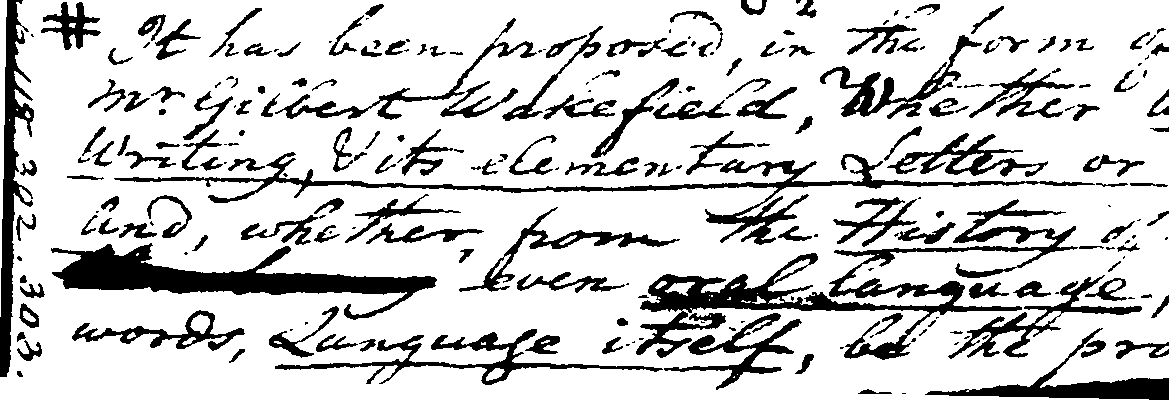 # It has been proposed, in the form of
Mr Gilbert Wakefield, Whether
Writing, & its elementary Letters or
And, whether, from the History of
even oral language,
words, Language itself, be the pro
302. 303.